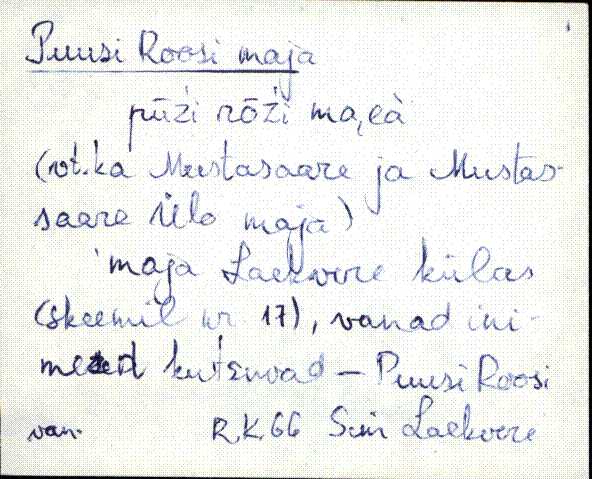 Puusi Roosi maja
pūźi rōźi ma,ɛà
(vt. ka Mustasaare ja Mustas-
saare Ülo maja)
maja Laekvere külas
(skeemil nr 17), vanad ini-
mesed kutsuvad – Puusi Roosi
van. R.K. 66 Sim Laekvere